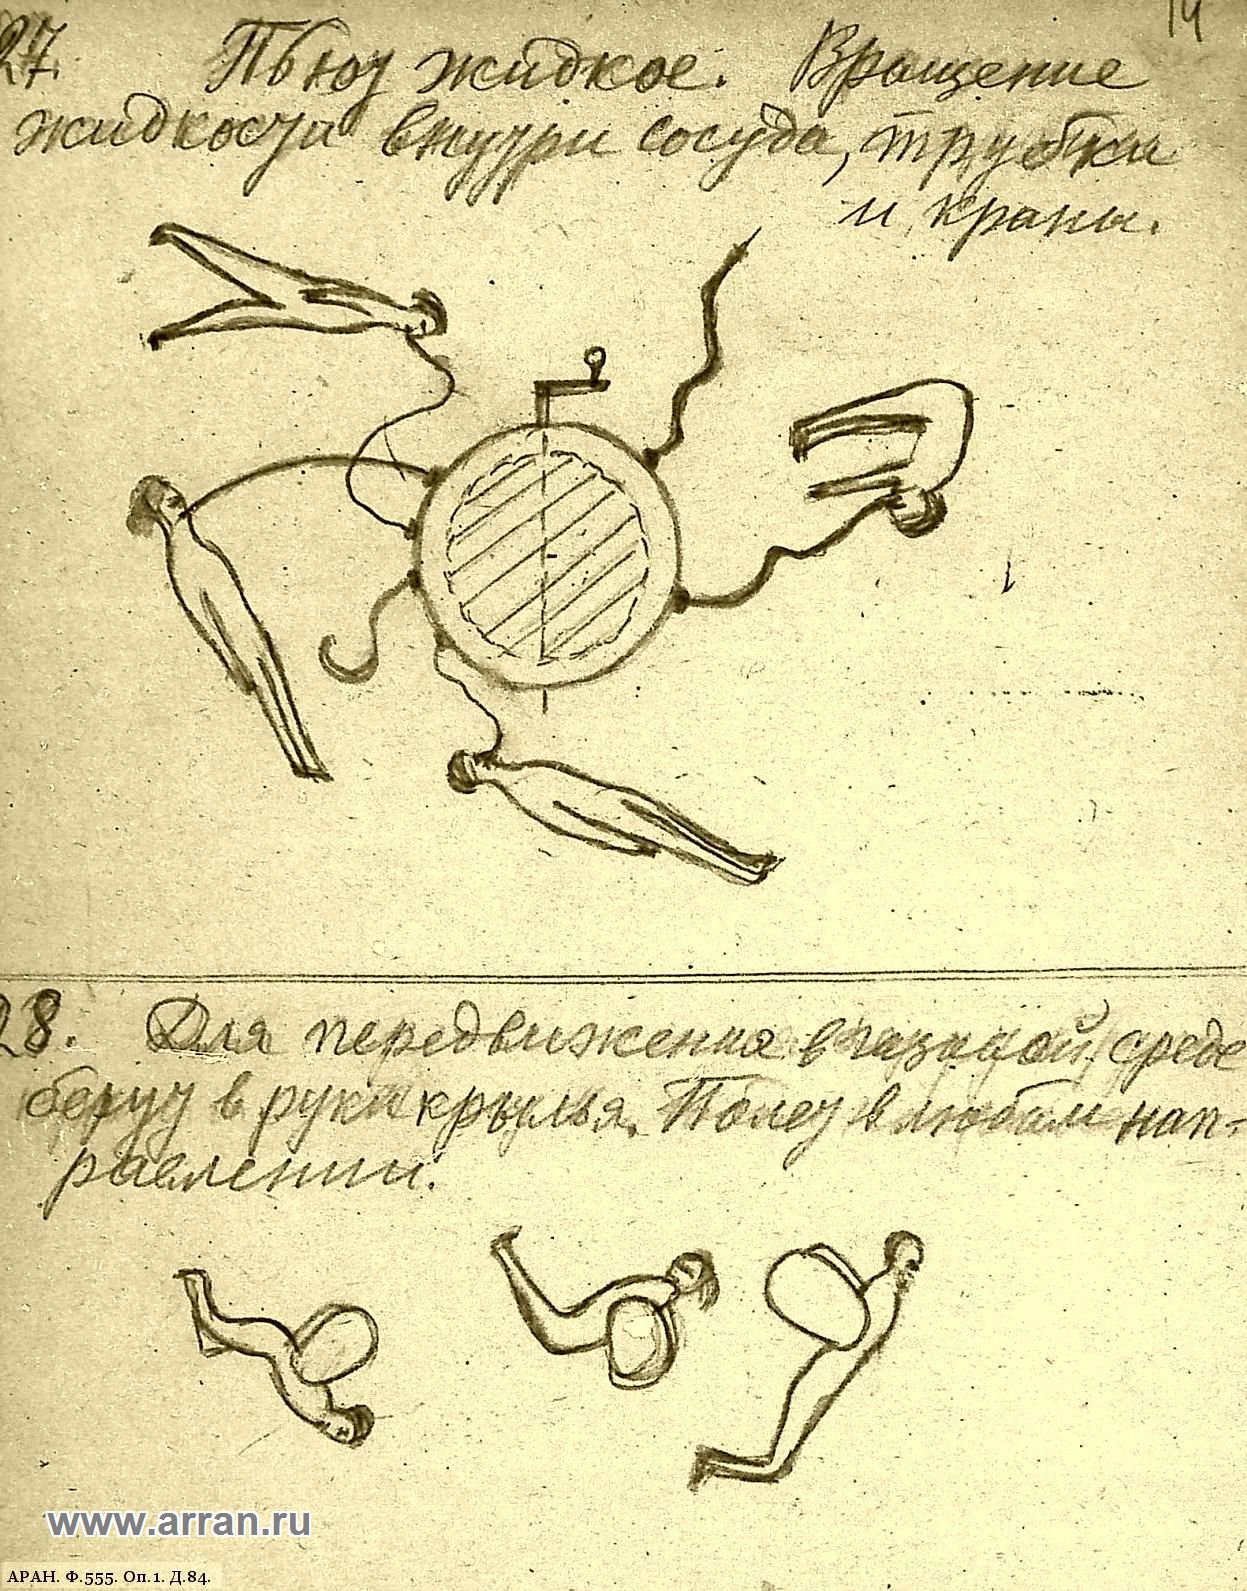 14
27. Пьют жидкое. Вращение
жидкости внутри сосуда, трубки
и краны.
28. Для передвижения в газовой среде
берут в руки крылья. Полет в любом нап-
равлении.
www.arran.ru
АРАН. Ф.555. Оп.1. Д.84.